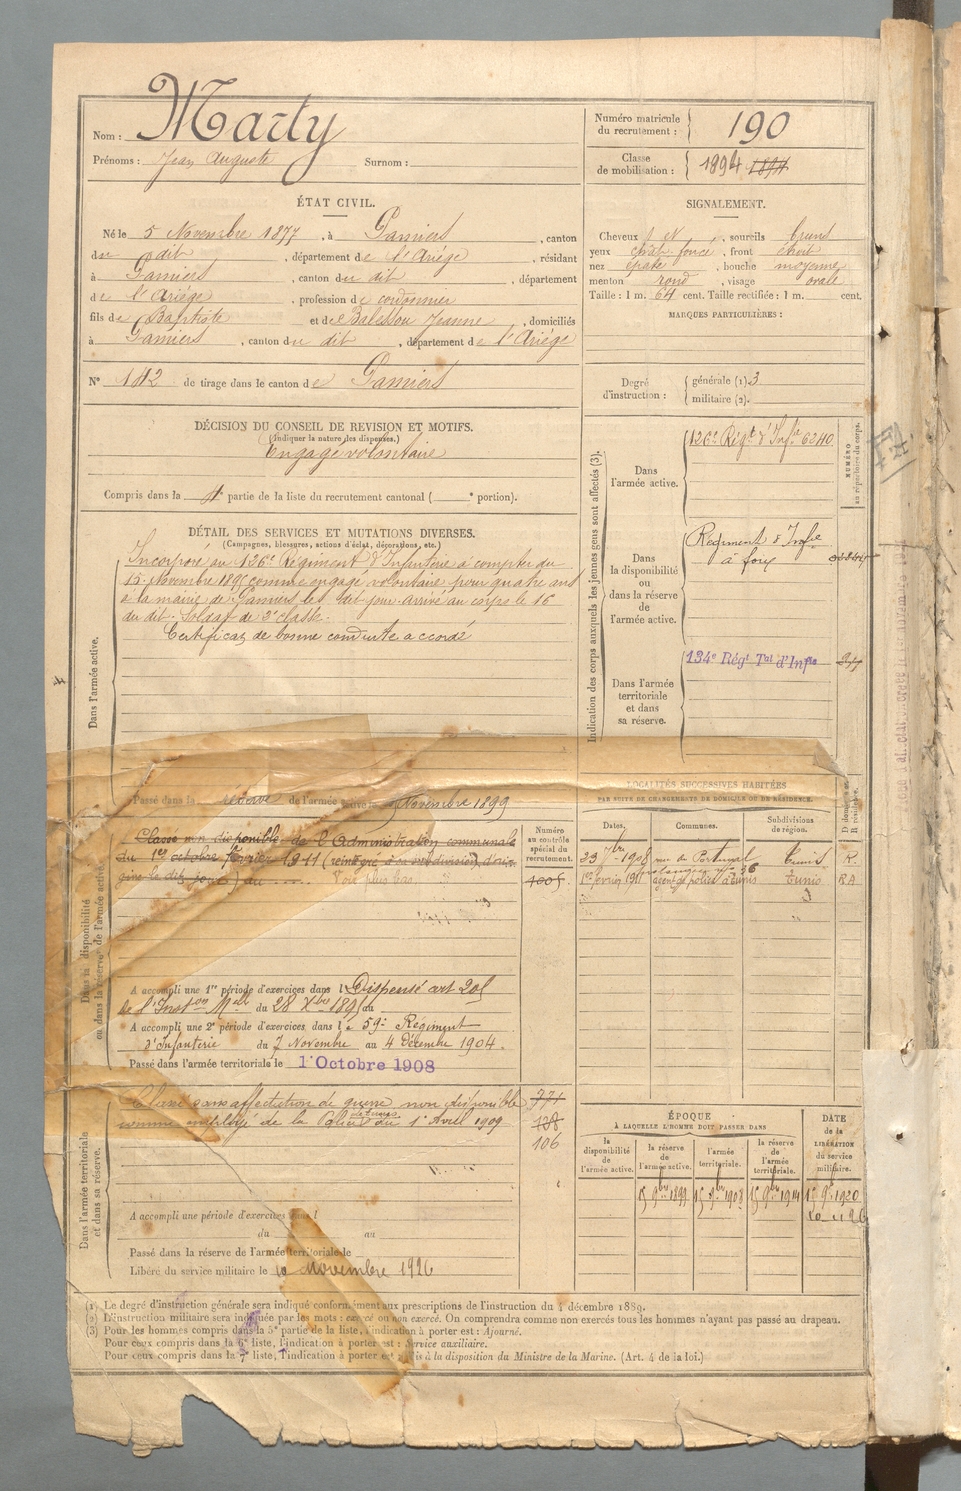 Nom : Marty
Prénoms : Jean Auguste Surnom :
Numéro matricule du recrutement : 190
Classe de mobilisation : 1894 1894
ÉTAT CIVIL.
Né le 5 Novembre 1877, à Pamiers, canton
du dit, département de l'Ariège, résidant
à Pamiers, canton du dit, département
de l'Ariège, profession de cordonnier
fils de Baptiste et de Jeanne, domiciliés
à Pamiers, canton du dit, département de l'Ariège
N° 112 de tirage dans le canton de Pamiers
SIGNALEMENT.
Cheveux , sourcils bruns
yeux foncé, front étroit
nez épaté, bouche moyenne
menton rond, visage ovale
Taille : 1 m. 64 cent. Taille rectifiée : 1 m. cent.
MARQUES PARTICULIÈRES :
Degré d'instruction : générale (1). 3
militaire (2).
DÉCISION DU CONSEIL DE REVISION ET MOTIFS.
(Indiquer la nature des dispenses.)
Engagé volontaire
Compris dans la partie de la liste du recrutement cantonal ( ° portion).
DÉTAIL DES SERVICES ET MUTATIONS DIVERSES.
(Campagnes, blessures, actions d'éclat, décorations, etc.)
Dans l'armée active.
Incorporé au 126e Régiment d'Infanterie à compter du
15 Novembre comme engagé volontaire pour quatre ans
à la mairie de Pamiers le dit jour. arrivé au corps le 16
du dit. Soldat de 2e classe.
Certificat de bonne conduite accordé
Passé dans la réserve de l'armée active le Novembre 1899
Indication des corps auxquels les jeunes gens sont affectés (3).
NUMÉRO au répertoire du corps.
Dans l'armée active.
126e Régt d'Infie 6240
Dans la disponibilité ou dans la réserve de l'armée active.
Régiment d'Infie
à foix
Dans l'armée territoriale et dans sa réserve.
134e Régt Tal d'Infie
LOCALITÉS SUCCESSIVES HABITÉES
PAR SUITE DE CHANGEMENTS DE DOMICILE OU DE RÉSIDENCE.
Dates. Communes. Subdivisions de région. D domicile. R résidence.
23 7bre 1908 rue de Portugal Tunis R.
1er février 1911 agent de police à Tunis Tunis RA
Dans la disponibilité ou dans la réserve de l'armée active.
Numéro au contrôle spécial du recrutement.
Classé non disponible de l'Administration communale
du 1er octobre février 1911 (réintégré à sa subdivision
) au Voir plus bas
1005
A accompli une 1re période d'exercices dans l Dispensé art
de l'Inston Mell du 28 Xbre 1895 au
A accompli une 2e période d'exercices dans l e 59e Régiment
d'Infanterie du 7 Novembre au 4 Décembre 1904.
Passé dans l'armée territoriale le 1 Octobre 1908
Dans l'armée territoriale et dans sa réserve.
Classé sans affectation de guerre non disponible 771
comme employé de la Police de Tunis du 1er Avril 1909 138
106
A accompli une période d'exercices dans l
du au
Passé dans la réserve de l'armée territoriale le
Libéré du service militaire le 10 Novembre 1926
ÉPOQUE
À LAQUELLE L'HOMME DOIT PASSER DANS
la disponibilité de l'armée active.
la réserve de l'armée active.
l'armée territoriale.
la réserve de l'armée territoriale.
DATE de la LIBÉRATION du service militaire.
15 9bre 1899 15 9bre 1908 15 9bre 1914 15 9e 1920
10 11 26
(1) Le degré d'instruction générale sera indiqué conformément aux prescriptions de l'instruction du 4 décembre 1889.
(2) L'instruction militaire sera indiquée par les mots : exercé ou non exercé. On comprendra comme non exercés tous les hommes n'ayant pas passé au drapeau.
(3) Pour les hommes compris dans la 5e partie de la liste, l'indication à porter est : Ajourné.
Pour ceux compris dans la 6e liste, l'indication à porter est : Service auxiliaire.
Pour ceux compris dans la 7e liste, l'indication à porter est : à la disposition du Ministre de la Marine. (Art. 4 de la loi.)